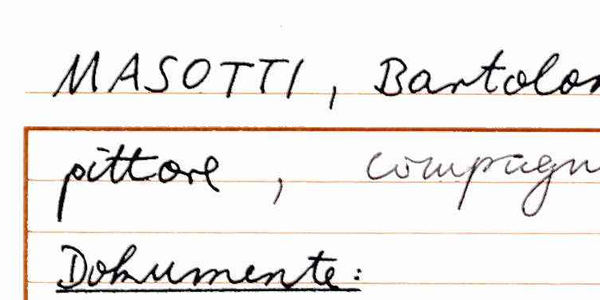 MASOTTI, Bartolom
pittore, compagn
Dokumente: